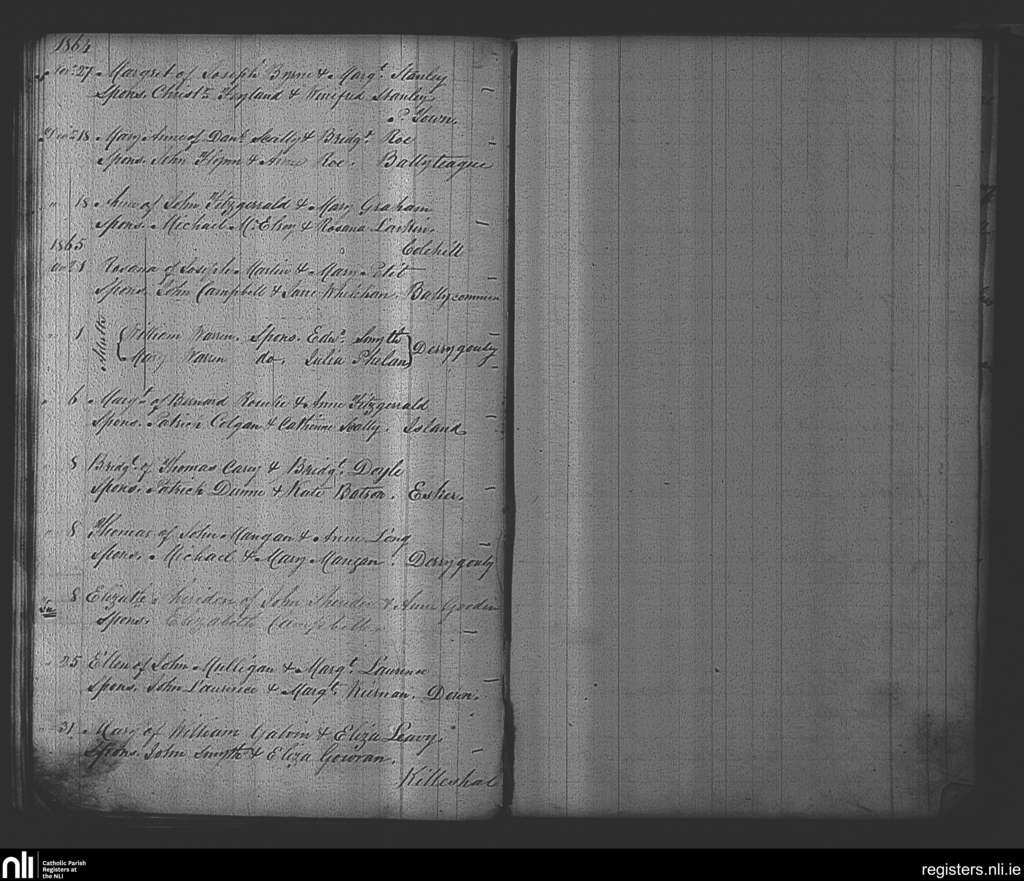 1864
Novr 27 Margret of Joseph Byrne & Margt Stanley
Spons. Christr Hyland & Winifred Stanley
P. Town.
18 Mary Anne of Danl Scally & Bridgt Roe
Spons. John Flynn & Anne Roe. Ballyteague
" 18 Anne of John Fitzgerrald & Mary Graham
Spons. Michael McElroy & Rosana Larkin.
Colehill
1865
1 Rosana of Joseph Martin & Mary
Spons. John Campbell & Jane Whelehan. Ballycommon
" 1 Adults William Warren. Spons. Edwd Smyth
Mary Warren do. Julia Phelan Derrygouly
" 6 Margt of Bernard & Anne Fitzgerrald
Spons. Patrick Colgan & Catherine Scally. Island
" 8 Bridgt of Thomas Carey & Bridgt Doyle
Spons. Patrick Dunne & Kate. Esker.
" 8 Thomas of John Mangan & Anne Long
Spons. Michael & Mary Mangan. Derrygouly
" 8 Sheridon of John & Anne
Spons. Elizabeth Campbell
" 25 Ellen of John Mulligan & Margt Laurence
Spons. John Laurence & Margt Kiernan. Down.
" 31 Mary of William Galvin & Eliza Leavy.
Spons. John Smyth & Eliza Gowran.
nli Catholic Parish
Registers at
the NLI
registers.nli.ie